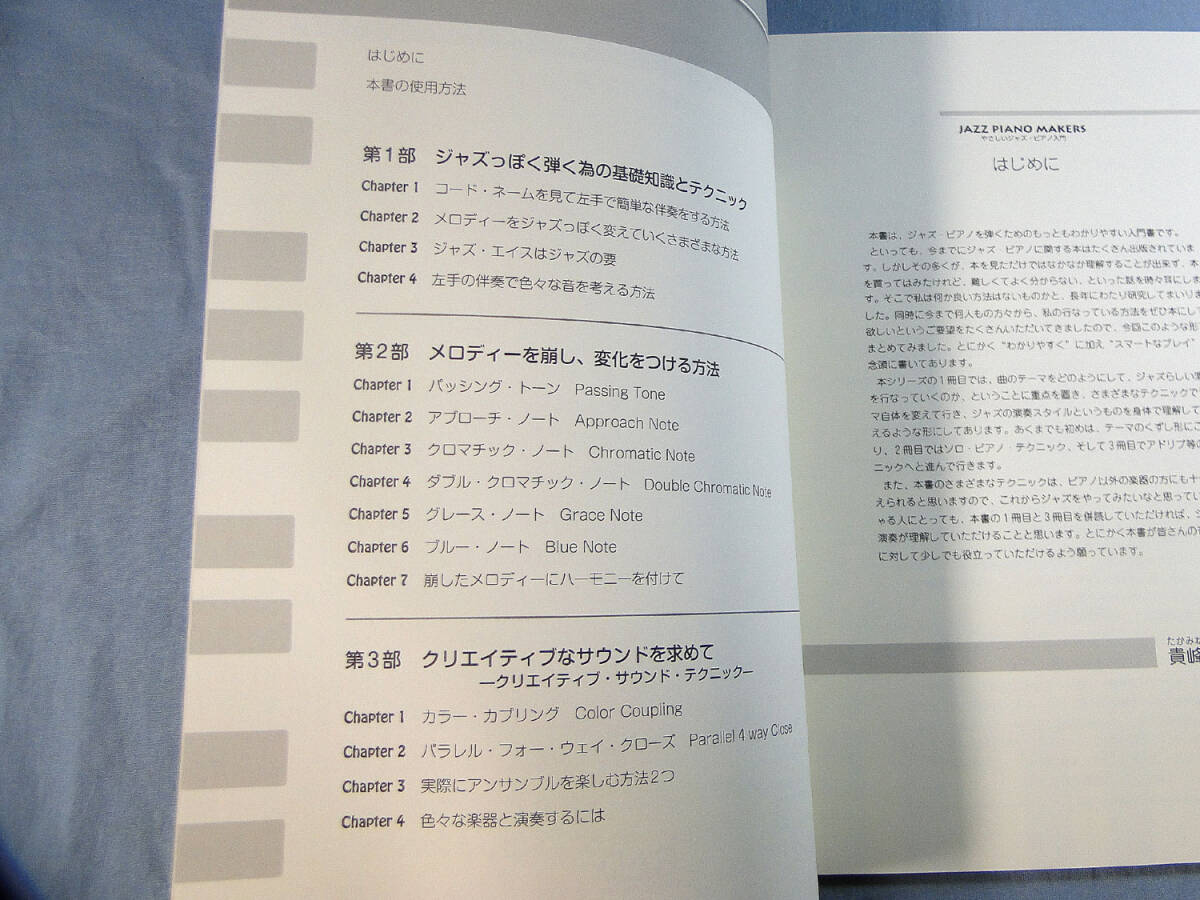 はじめに
本書の使用方法
第1部 ジャズっぽく弾く為の基礎知識とテクニック
Chapter 1 コード・ネームを見て左手で簡単な伴奏をする方法
Chapter 2 メロディーをジャズっぽく変えていくさまざまな方法
Chapter 3 ジャズ・エイスはジャズの要
Chapter 4 左手の伴奏で色々な音を考える方法
第2部 メロディーを崩し、変化をつける方法
Chapter 1 パッシング・トーン Passing Tone
Chapter 2 アプローチ・ノート Approach Note
Chapter 3 クロマチック・ノート Chromatic Note
Chapter 4 ダブル・クロマチック・ノート Double Chromatic Note
Chapter 5 グレース・ノート Grace Note
Chapter 6 ブルー・ノート Blue Note
Chapter 7 崩したメロディーにハーモニーを付けて
第3部 クリエイティブなサウンドを求めて
―クリエイティブ・サウンド・テクニック―
Chapter 1 カラー・カプリング Color Coupling
Chapter 2 パラレル・フォー・ウェイ・クローズ Parallel 4 way Close
Chapter 3 実際にアンサンブルを楽しむ方法2つ
Chapter 4 色々な楽器と演奏するには
JAZZ PIANO MAKERS
やさしいジャズ・ピアノ入門
はじめに
本書は、ジャズ・ピアノを弾くためのもっともわかりやすい入門書です。
といっても、今までにジャズ・ピアノに関する本はたくさん出版されていま
す。しかしその多くが、本を見ただけではなかなか理解することが出来ず、本
を買ってはみたけれど、難しくてよく分からない、といった話を時々耳にしま
す。そこで私は何か良い方法はないものかと、長年にわたり研究してまいりま
した。同時に今まで何人もの方々から、私の行なっている方法をぜひ本にして
欲しいというご要望をたくさんいただいてきましたので、今回このような形
まとめてみました。とにかく“わかりやすく”に加え“スマートなプレイ”
念頭に書いてあります。
本シリーズの1冊目では、曲のテーマをどのようにして、ジャズらしい
を行なっていくのか、ということに重点を置き、さまざまなテクニックで
マ自体を変えて行き、ジャズの演奏スタイルというものを身体で理解して
えるような形にしてあります。あくまでも初めは、テーマのくずし形にこ
り、2冊目ではソロ・ピアノ・テクニック、そして3冊目でアドリブ等の
ニックへと進んで行きます。
また、本書のさまざまなテクニックは、ピアノ以外の楽器の方にも十
えられると思いますので、これからジャズをやってみたいなと思ってい
ゃる人にとっても、本書の1冊目と3冊目を併読していただければ、ジ
演奏が理解していただけることと思います。とにかく本書が皆さんの
に対して少しでも役立っていただけるよう願っています。
たかみね
貴峰